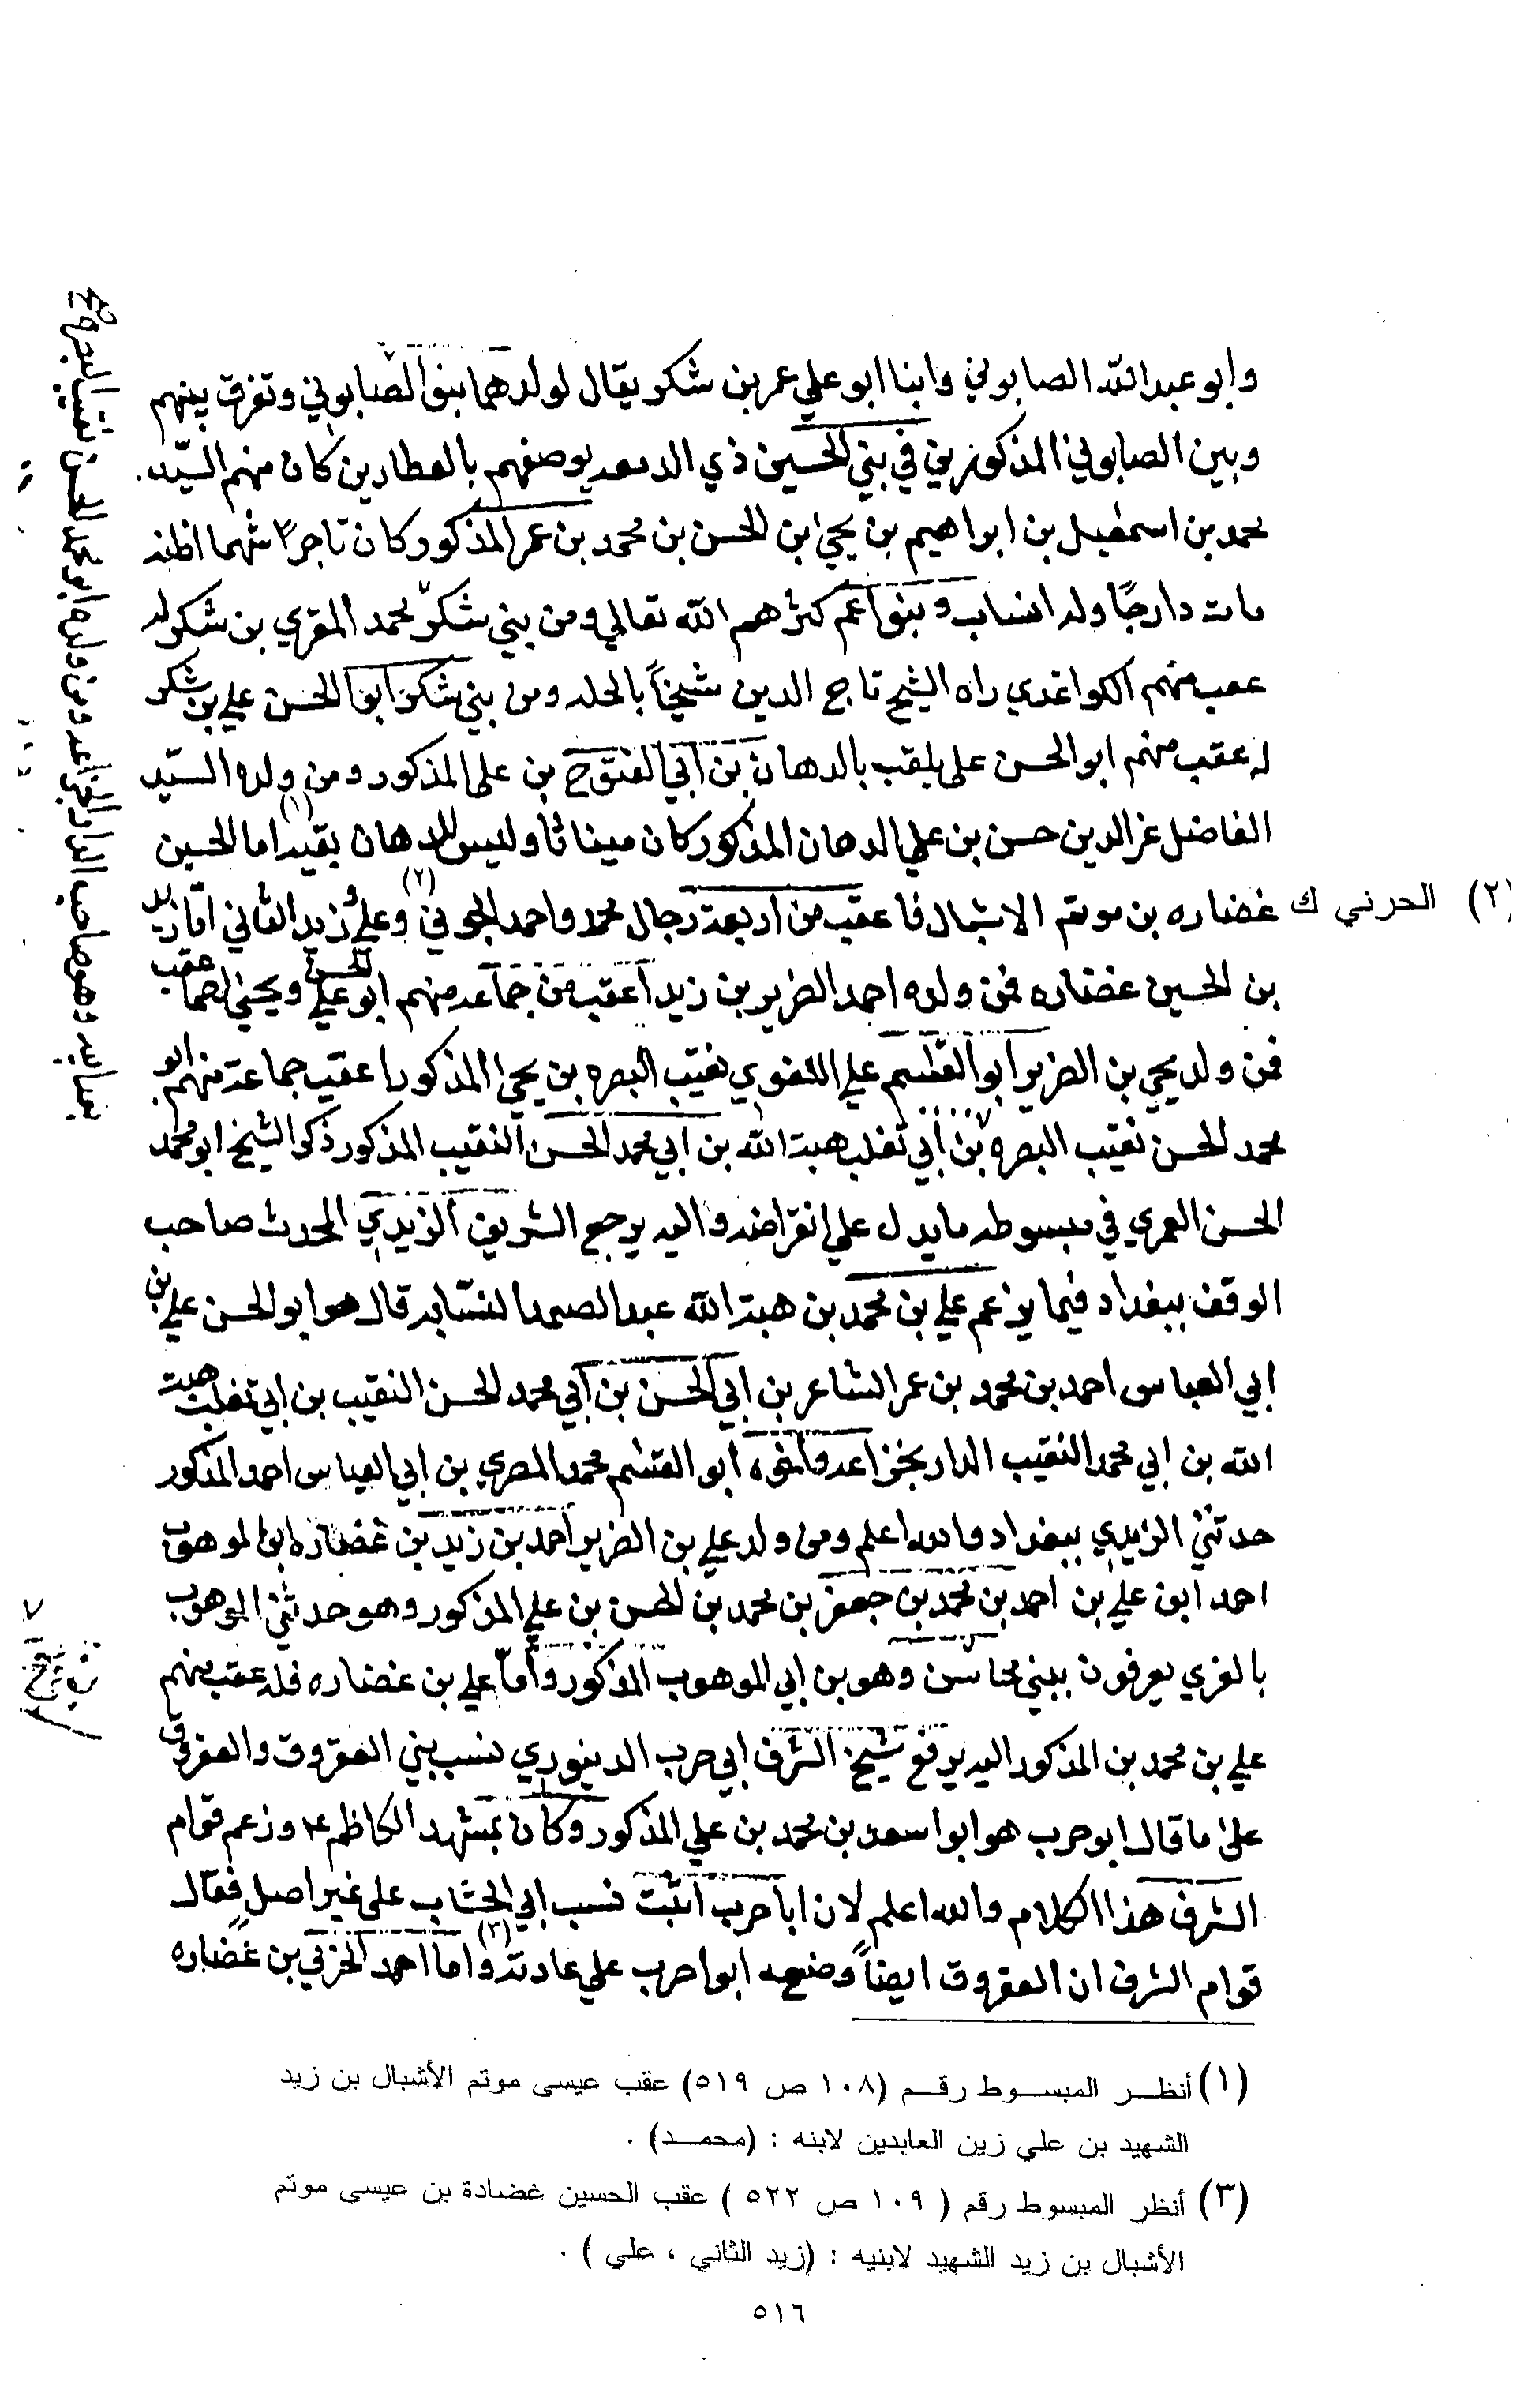 وابو عبد الله الصابوني وابنا ابو علي عمر بن شكر يقال لولدهما بنو الصابوني وتفرق بينهم
وبين الصابوني المذكورين في بني الحسين ذي الدمعه بوصفهم بالعطارين كان منهم السيّد
محمد بن اسمعيل بن ابراهيم بن يحيى ابن الحسن بن محمد بن عمر المذكور وكان تاجرًا شهما اظنه
مات دارجًا وله انساب وبنو اعم كثرهم الله تعالي ومن بني شكر محمد المقري بن شكر له
عقب منهم الكواغدي راه الشيخ تاج الدين شيخاً بالحله ومن بني شكر ابو الحسن علي بن شكر
له عقب منهم ابو الحسن علي يلقب بالدهان بن ابي الفتوح بن علي المذكور ومن ولده السيّد
الفاضل عز الدين حسن بن علي الدهان المذكور كان ميناثا وليس للدهان بقيه (١) اما الحسين
غضاره بن موتم الاشبال فاعقب من اربعة رجال محمد واحمد الجوني (٢) وعلي وزيد الثاني امّا زيد
(٢) الحرني ك
بن الحسين غضاره فمن ولده احمد الضرير بن زيد اعقب من جماعه منهم ابو علي الحسن ويحيى لهما عقب
فمن ولد يحيى بن الضرير ابو القسم علي اللغوي نقيب البصره بن يحيى المذكور اعقب جماعة منهم ابو
محمد الحسن نقيب البصره بن ابي تغلب هبة الله بن ابي محمد الحسن النقيب المذكور ذكر الشيخ ابو محمد
الحسن العمري في مبسوطه ما يدل علي انقراضه واليه يرجع الشريف الزيدي المحدث صاحب
الوقف ببغداد فيما يزعم علي بن محمد بن هبة الله عبد الصمد النسّابه قال هو ابو الحسن علي بن
ابي العباس احمد بن محمد بن عمر الشاعر بن ابي الحسن بن ابي محمد الحسن النقيب بن ابي تغلب هبت
الله بن ابي محمد النقيب الدار بخزاعه واخوه ابو القسم محمد المصري بن ابي العباس احمد المذكور
حدثني الزيدي ببغداد والله اعلم ومن ولد علي بن الضرير احمد بن زيد بن غضاره ابو الموهوب
احمد ابن علي بن احمد بن محمد بن جعفر بن محمد بن الحسن بن علي المذكور وهو حدثني الموهوب
بالغري يعرفون ببني محاسن وهو بن ابي الموهوب المذكور وأمّا علي بن غضاره فله عقب منهم
علي بن محمد بن المذكور اليه يرفع شيخ الشرف ابي حرب الدينوري نسب بني العقروق والعقروق
على ما قال ابو حرب هو ابو اسعد بن محمد بن علي المذكور وكان بمشهد الكاظم ع وزعم قوام
الشرف هذا الكلام والله اعلم لان ابا حرب اثبت نسب ابي الحشاب على غير اصل فقال
قوام الشرف ان العقروق ايضاً وضعه ابو احرب علي عادته (٣) واما احمد الحزني بن غضاره
(١) أنظر المبسوط رقم (١٠٨ ص ٥١٩) عقب عيسى موتم الأشبال بن زيد
الشهيد بن علي زين العابدين لابنه : (محمد) .
(٣) أنظر المبسوط رقم ( ١٠٩ ص ٥٢٢ ) عقب الحسين غضادة بن عيسى موتم
الأشبال بن زيد الشهيد لابنيه : (زيد الثاني ، علي ) .
٥١٦